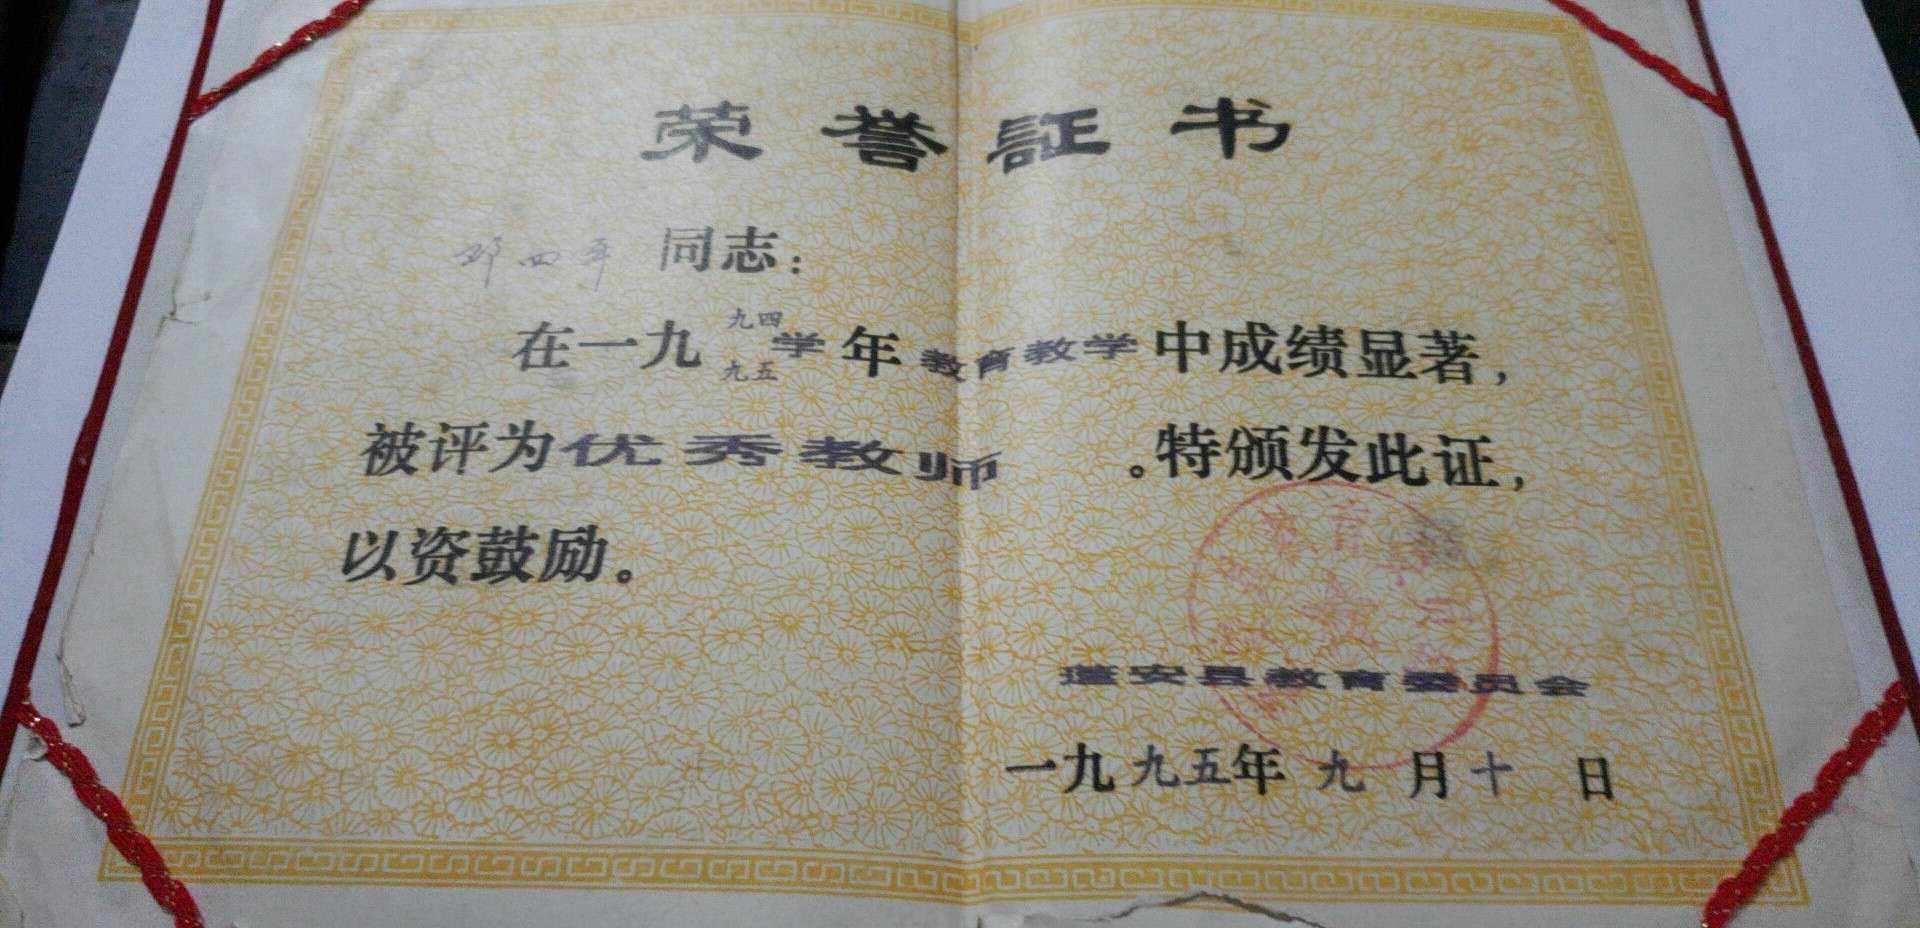 荣誉証书
邓四平 同志：
在一九九四九五学年教育教学中成绩显著，
被评为优秀教师。特颁发此证，
以资鼓励。
蓬安县教育委员会
一九九五年九月十日